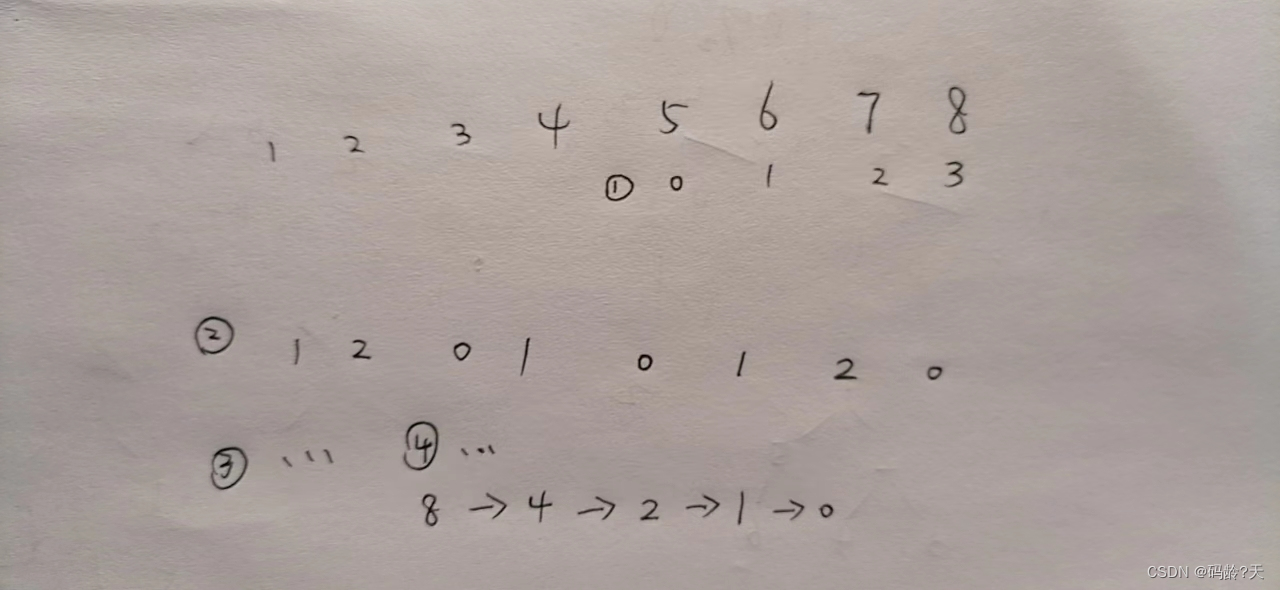 1 2 3 4 5 6 7 8
① 0 1 2 3
② 1 2 0 1 0 1 2 0
③ ... ④ ...
8 → 4 → 2 → 1 → 0
CSDN @码龄?天